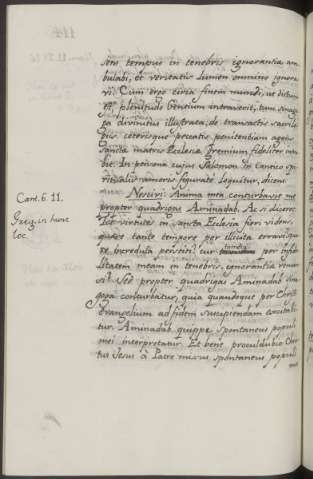 sens tempus in tenebris ignorantia am
bulabi, et veritatis lumen omnino ignora
vi. Cum ergo circa finem mundi, ut dictum
est, plenitudo Gentium intraverit, tum Sinago
ga divinitus illustrata, de transactis sacrile
giis, ceterisque peccatis penitentiam agens
Sancta matris Ecclesia Gremium fideliter intra
bit. In persona cujus Salomon in Cantico spi
ritualis amoris figurate loquitur, dicens
Nescivi: Anima mea conturbavit me
Cant. 6. 11.
propter quadrigas Aminadab. Ac si diceret:
Greg. in hunc
loc.
Tot virtutes in sancta Ecclesia fieri videns,
quare tanto tempore per illicita erravi, qua
re incredula persistiti, cur tamdiu per infide
litatem meam in tenebris ignorantia reman
si? Sed propter quadrigas Aminadab Sina
goga conturbatur, quia quandoque per Christi
Evangelium ad fidem suscipiendam concitabi
tur. Aminadab quippe spontaneus populi
mei interpretatur. Et bene proculdubio Chris
tus Jesus à Patre missus spontaneus populi